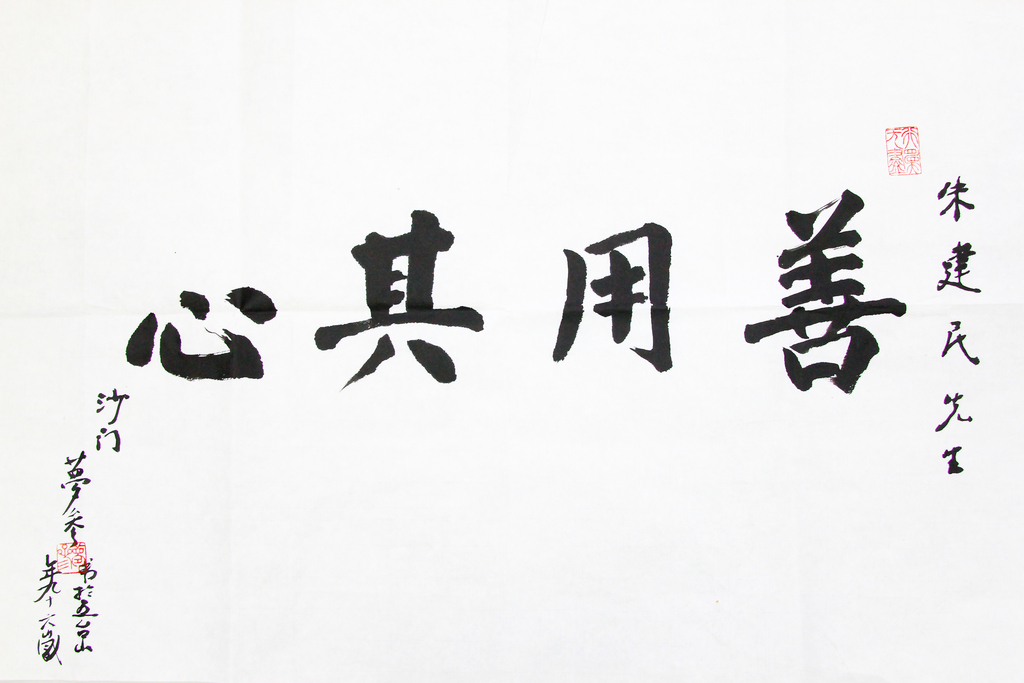 朱建民先生
善用其心
沙门
夢参
书於五台山
年九十六歲